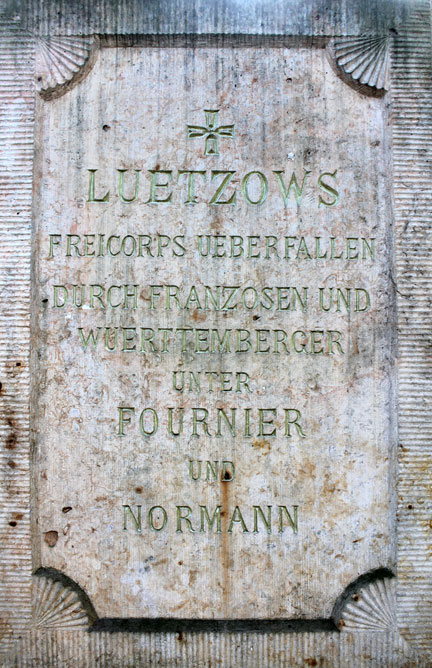 LUETZOWS
FREICORPS UEBERFALLEN
DURCH FRANZOSEN UND
WÜERTTEMBERGER
UNTER
FOURNIER
UND
NORMANN